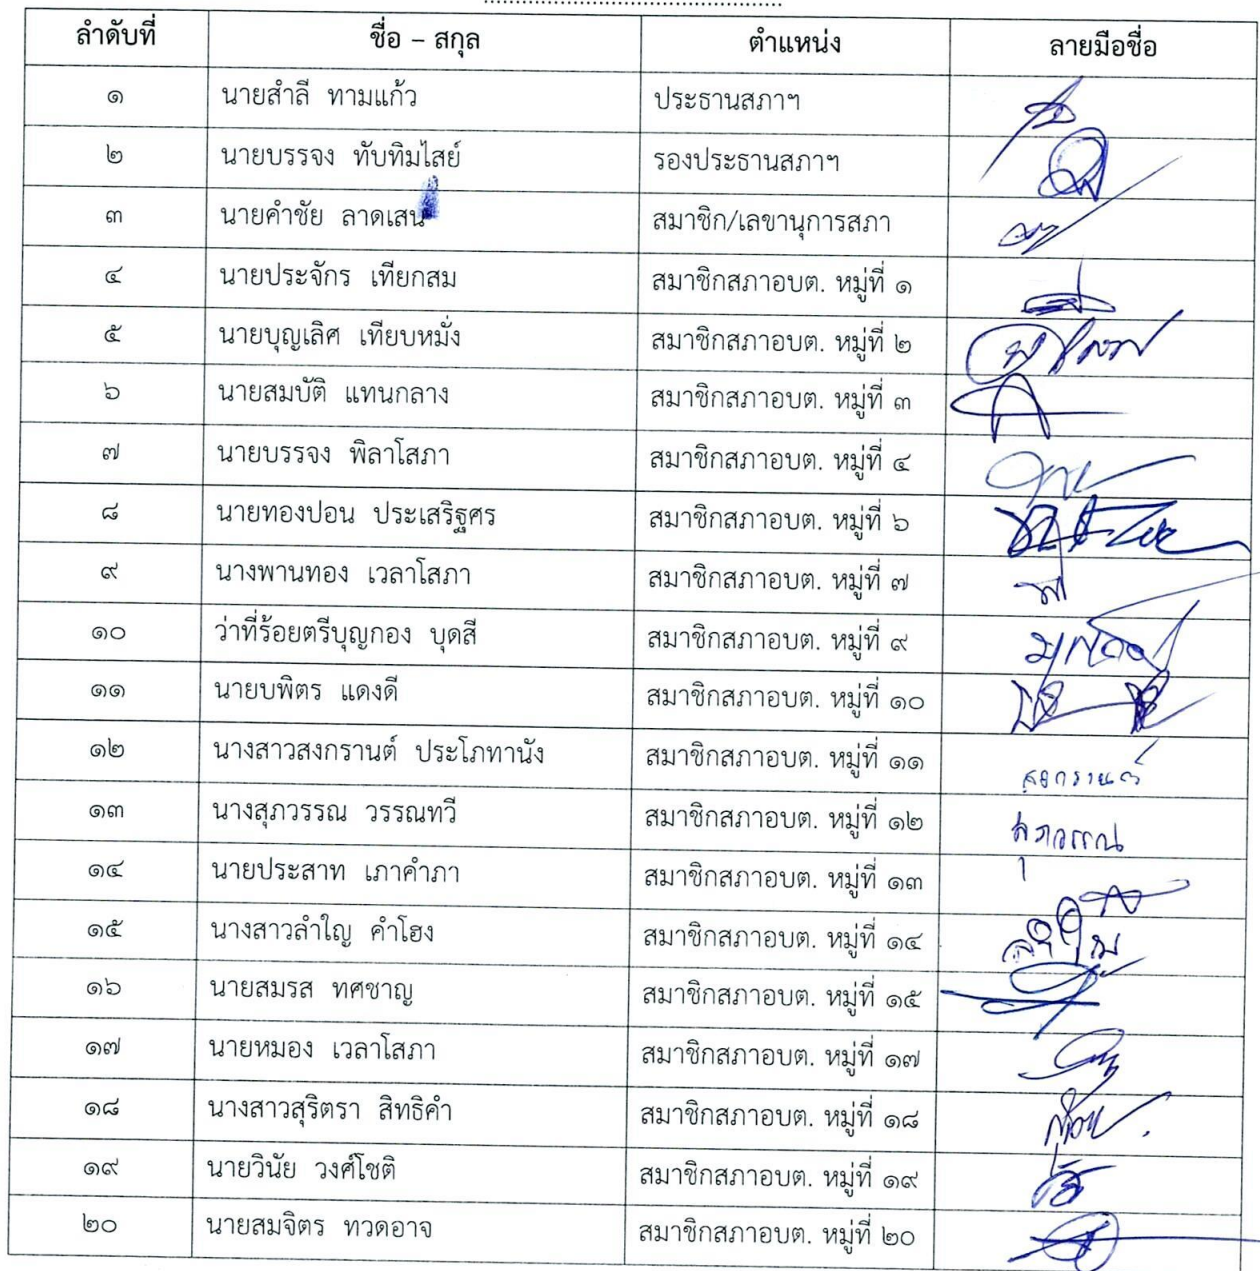 ลำดับที่ ชื่อ – สกุล ตำแหน่ง ลายมือชื่อ
๑ นายสำลี ทามแก้ว ประธานสภาฯ
๒ นายบรรจง ทับทิมไสย์ รองประธานสภาฯ
๓ นายคำชัย ลาดเสน สมาชิก/เลขานุการสภา
๔ นายประจักร เทียกสม สมาชิกสภาอบต. หมู่ที่ ๑
๕ นายบุญเลิศ เทียบหมั่ง สมาชิกสภาอบต. หมู่ที่ ๒
๖ นายสมบัติ แทนกลาง สมาชิกสภาอบต. หมู่ที่ ๓
๗ นายบรรจง พิลาโสภา สมาชิกสภาอบต. หมู่ที่ ๔
๘ นายทองปอน ประเสริฐศร สมาชิกสภาอบต. หมู่ที่ ๖
๙ นางพานทอง เวลาโสภา สมาชิกสภาอบต. หมู่ที่ ๗
๑๐ ว่าที่ร้อยตรีบุญกอง บุดสี สมาชิกสภาอบต. หมู่ที่ ๙
๑๑ นายบพิตร แดงดี สมาชิกสภาอบต. หมู่ที่ ๑๐
๑๒ นางสาวสงกรานต์ ประโภทานัง สมาชิกสภาอบต. หมู่ที่ ๑๑ สงกรานต์
๑๓ นางสุภวรรณ วรรณทวี สมาชิกสภาอบต. หมู่ที่ ๑๒ สุภวรรณ
๑๔ นายประสาท เภาคำภา สมาชิกสภาอบต. หมู่ที่ ๑๓
๑๕ นางสาวลำใญ คำโฮง สมาชิกสภาอบต. หมู่ที่ ๑๔ ลำใญ
๑๖ นายสมรส ทศชาญ สมาชิกสภาอบต. หมู่ที่ ๑๕
๑๗ นายหมอง เวลาโสภา สมาชิกสภาอบต. หมู่ที่ ๑๗
๑๘ นางสาวสุริตรา สิทธิคำ สมาชิกสภาอบต. หมู่ที่ ๑๘
๑๙ นายวินัย วงศ์โชติ สมาชิกสภาอบต. หมู่ที่ ๑๙
๒๐ นายสมจิตร ทวดอาจ สมาชิกสภาอบต. หมู่ที่ ๒๐